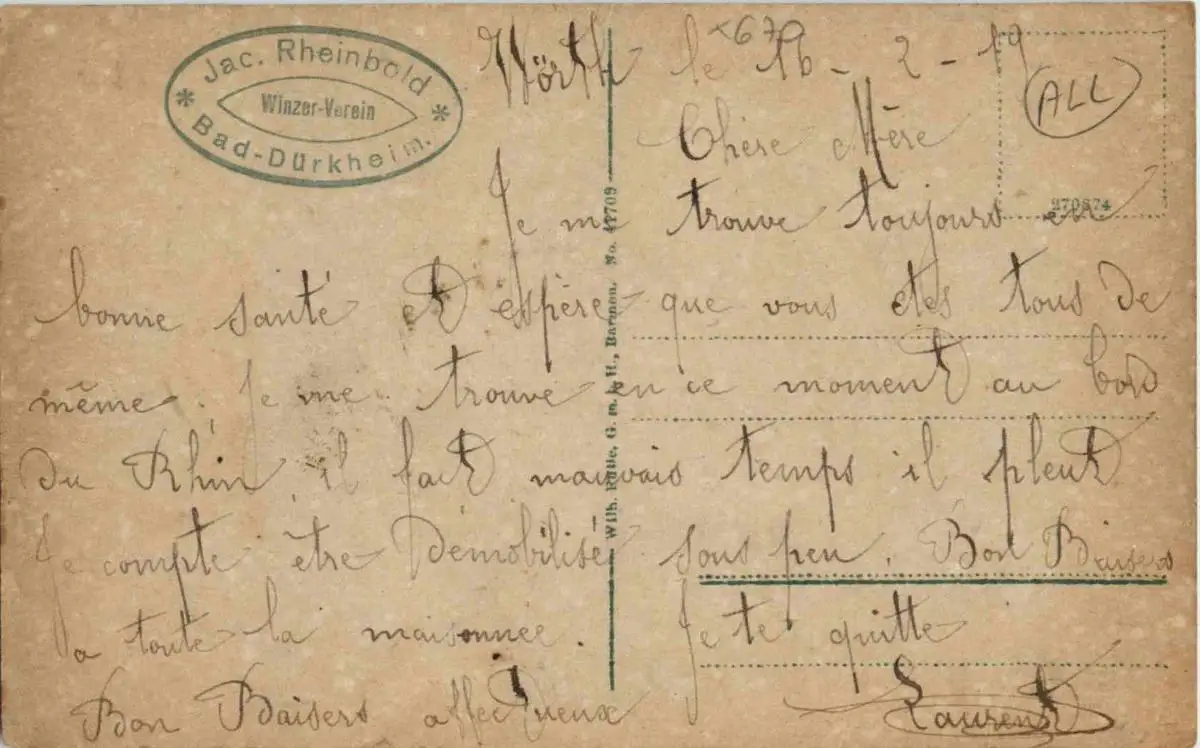 Jac. Rheinbold
Winzer-Verein
Bad-Dürkheim.
Wörth le 16 - 2 - 19
x679
ALL
Chère Mère
270674
Je me trouve toujours en
bonne santé et espère que vous etes tous de
même. Je me trouve en ce moment au bord
du Rhin, il fait mauvais temps il pleut
Je compte être Démobilisé sous peu. Bon Baisers
a toute la maisonnée. Je te quitte
Bon Baisers affectueux
Laurent
Wilh. G. m. b. H., Barmen. No.